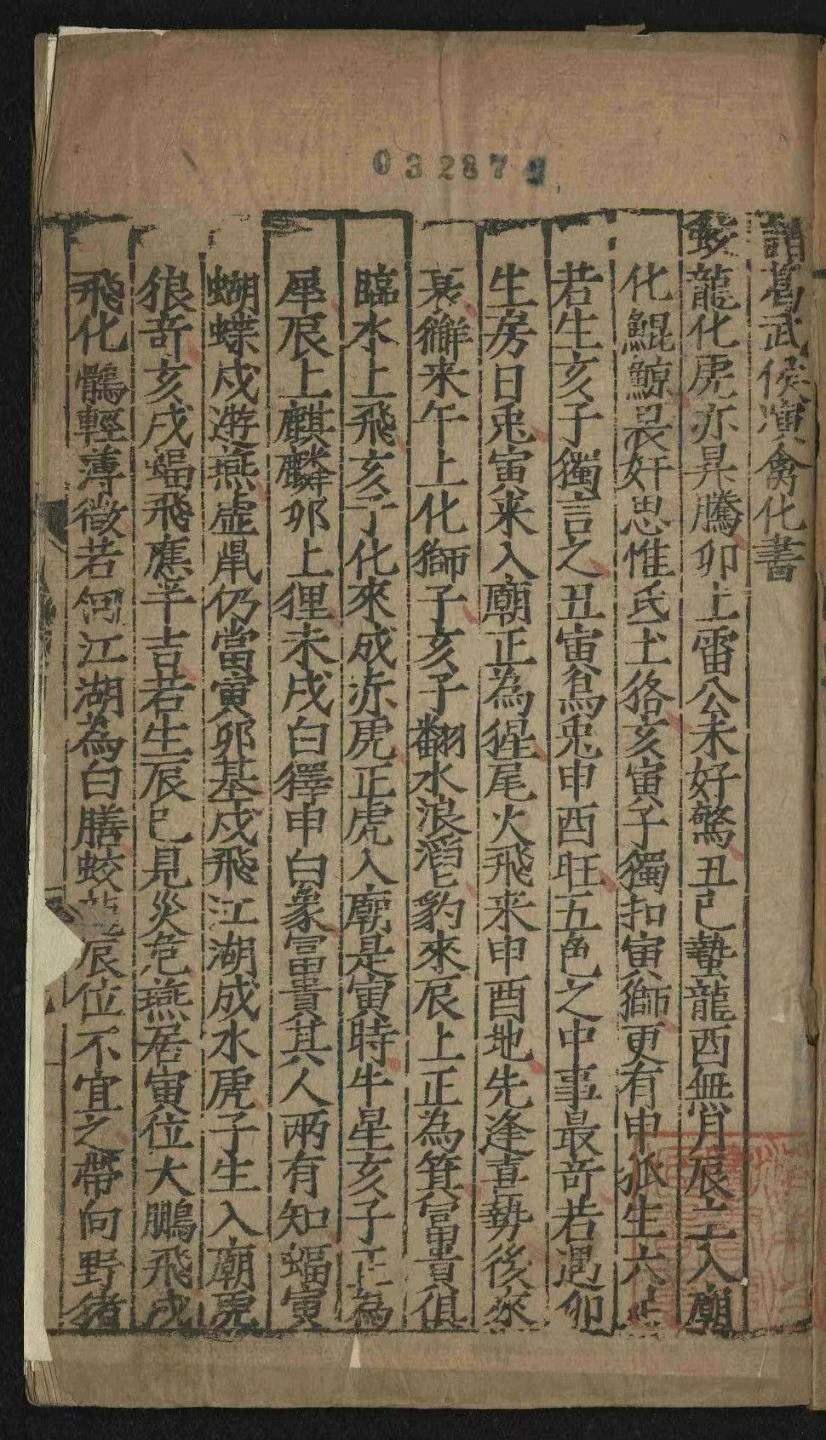 032879
諸葛武侯演禽化書
蛟龍化虎亦昇騰卯上雷公未好驚丑巳蟄龍酉無月辰立入廟
化鯤鯨辰奸思惟氐土狢亥寅子獨扣寅獅更有申狐生六
若生亥子獨言之丑寅為兎申酉旺五色之中事最奇若遇卯
生房日兎寅来入廟正為猩尾火飛来申酉地先逢直勢後來
獬来午上化獅子亥子翻水浪滔豹來辰上正為箕富貴俱
臨水上飛亥子化來成赤虎正虎入廟是寅時牛星亥子正為
犀辰上麒麟卯上狸未戌白獐申白象富貴其人兩有知蝠寅
蝴蝶戌遊燕虛鼠仍當寅卯基戌飛江湖成水虎子生入廟
狼奇亥戌蝠飛應半吉若生辰巳見災危燕居寅位大鵬飛戌
飛化鶻輕薄徵若何江湖為白膳蛟龍辰位不宜之帶向野豬